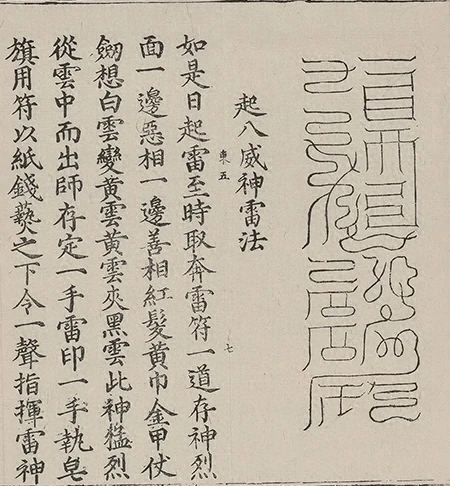 起八威神雷法
東五 七
如是日起雷至時取奔雷符一道存神烈
面一邊惡相一邊善相紅髮黃巾金甲仗
劒想白雲變黃雲黃雲夾黑雲此神猛烈
從雲中而出師存定一手雷印一手執皂
旗用符以紙錢爇之下令一聲指揮雷神